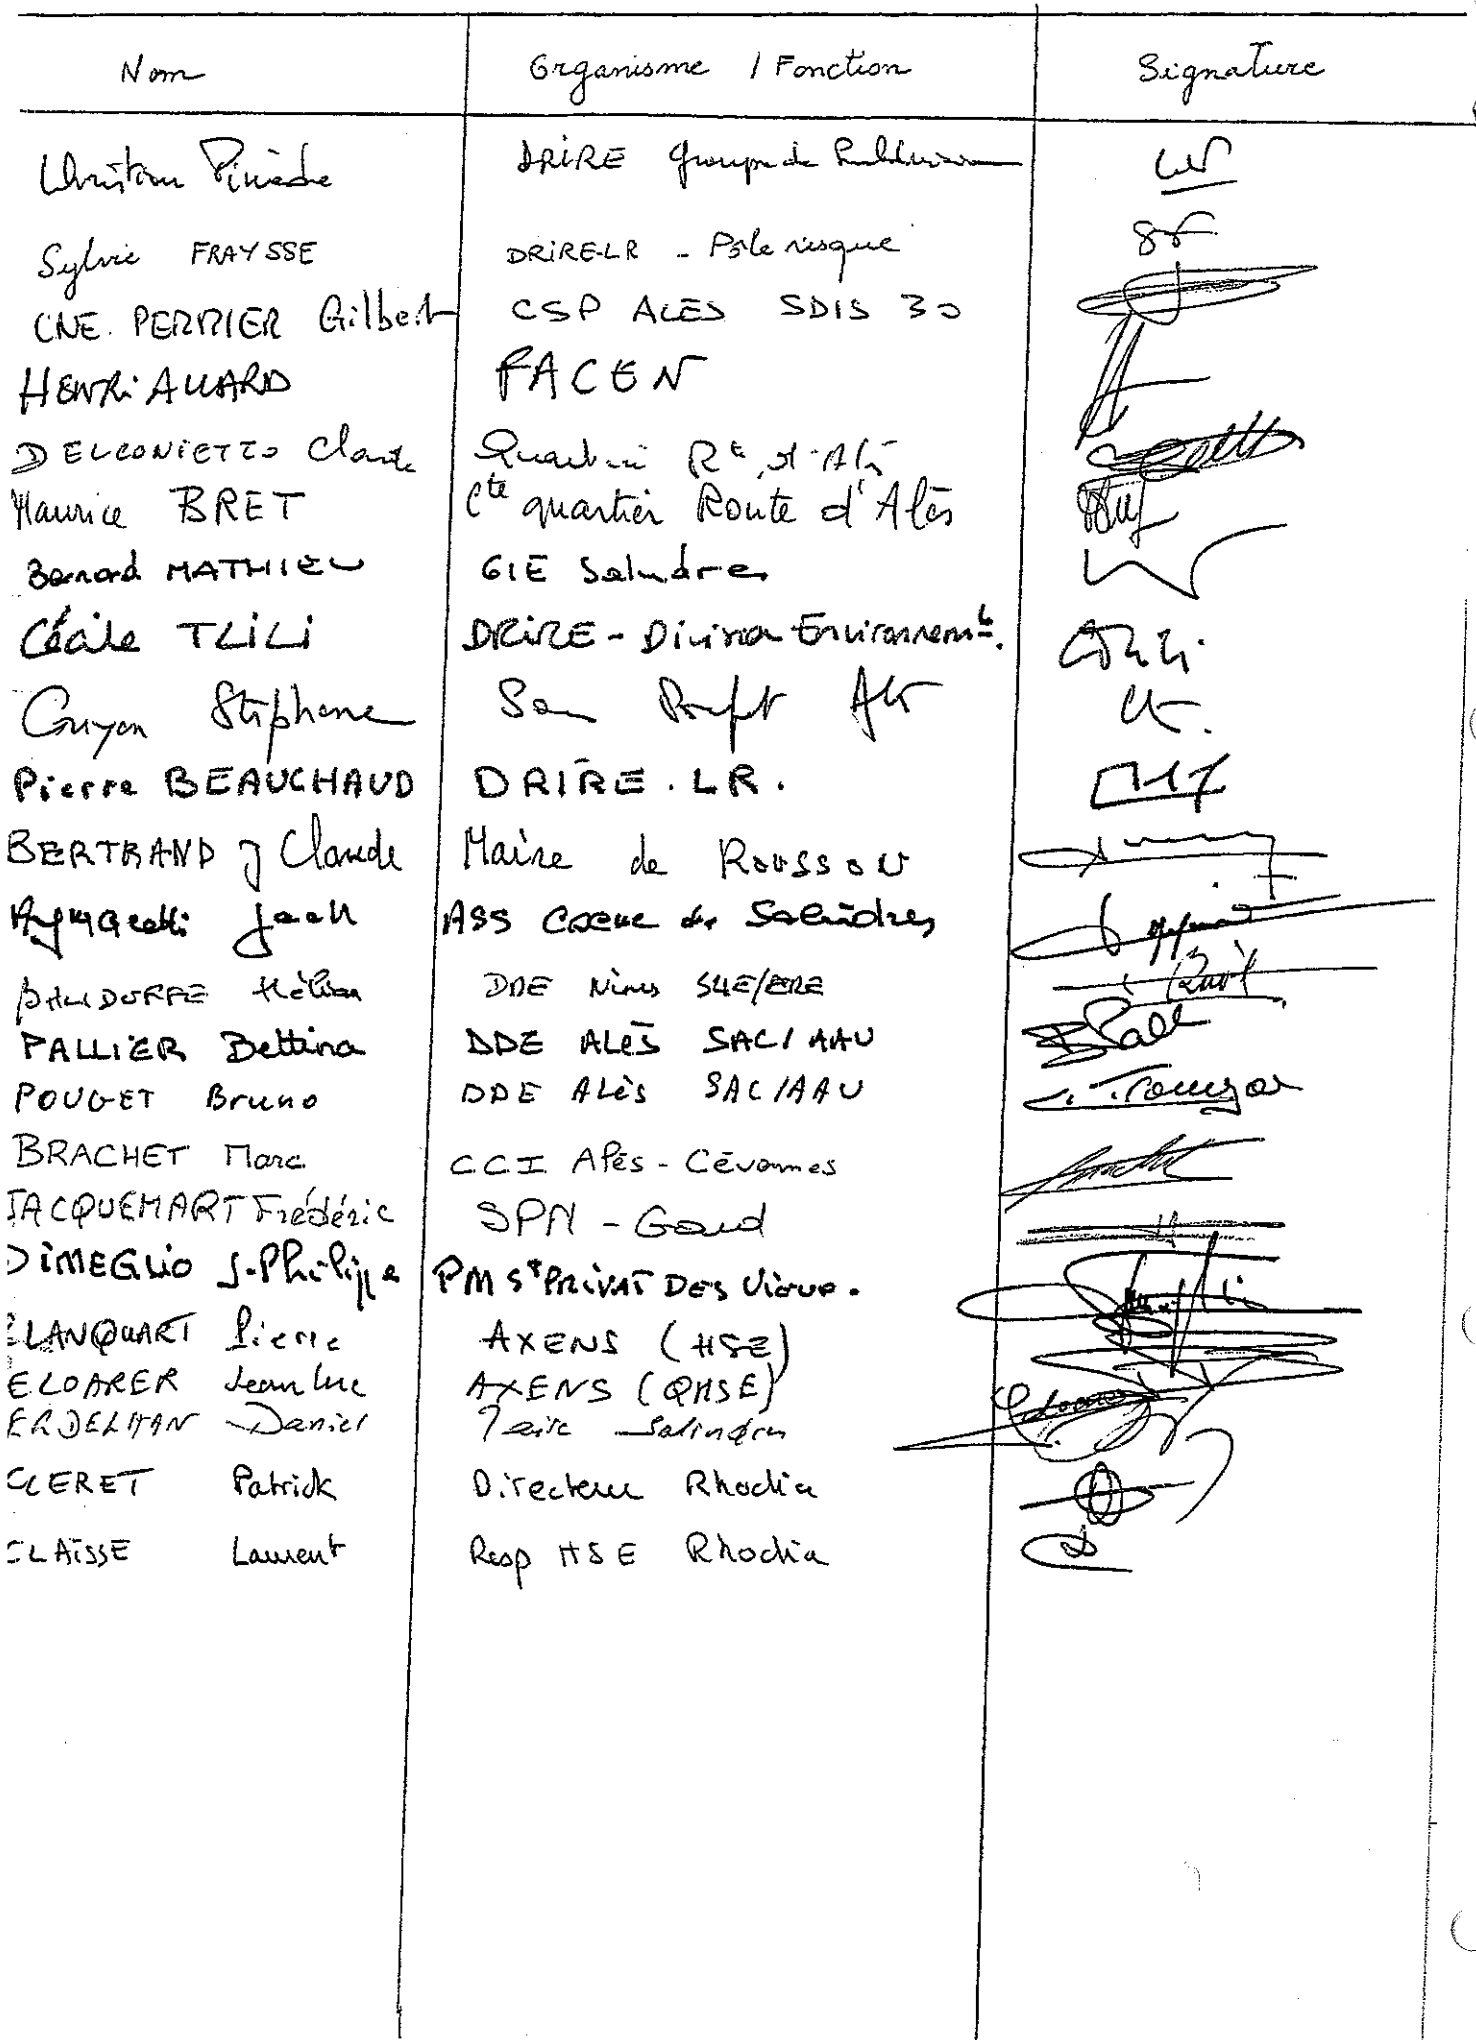 Nom Organisme / Fonction Signature
Christian DRIRE Groupe de
Sylvie FRAYSSE DRIRE-LR - Pôle risque
CNE. PERRIER Gilbert CSP ALES SDIS 30
HENRI ALLARD FACEN
Claude Quartier Rte d'Alès
Maurice BRET Cte quartier Route d'Alès
Bernard MATHIEU GIE Salindres
Cécile TLILI DRIRE - Division Environnemt.
Guyon Stéphane Sous Préfet Alès
Pierre BEAUCHAUD DRIRE . LR .
BERTRAND J Claude Maire de ROUSSON
ASS Coeur de Salindres
DDE Nimes
PALLIER Bettina DDE ALès SAC/AAU
POUGET Bruno DDE ALès SAC/AAU
BRACHET Marc CCI Alès - Cévennes
JACQUEMART Frédéric SPN - Gard
DIMEGLIO J-Philippe PM St PRIVAT DES Vieux .
LANQUART Pierre AXENS (HSE)
ELOARER Jean Luc AXENS (QHSE)
ERDELHAN Daniel Salindres
CLERET Patrick Directeur Rhodia
CLAISSE Laurent Resp HSE Rhodia